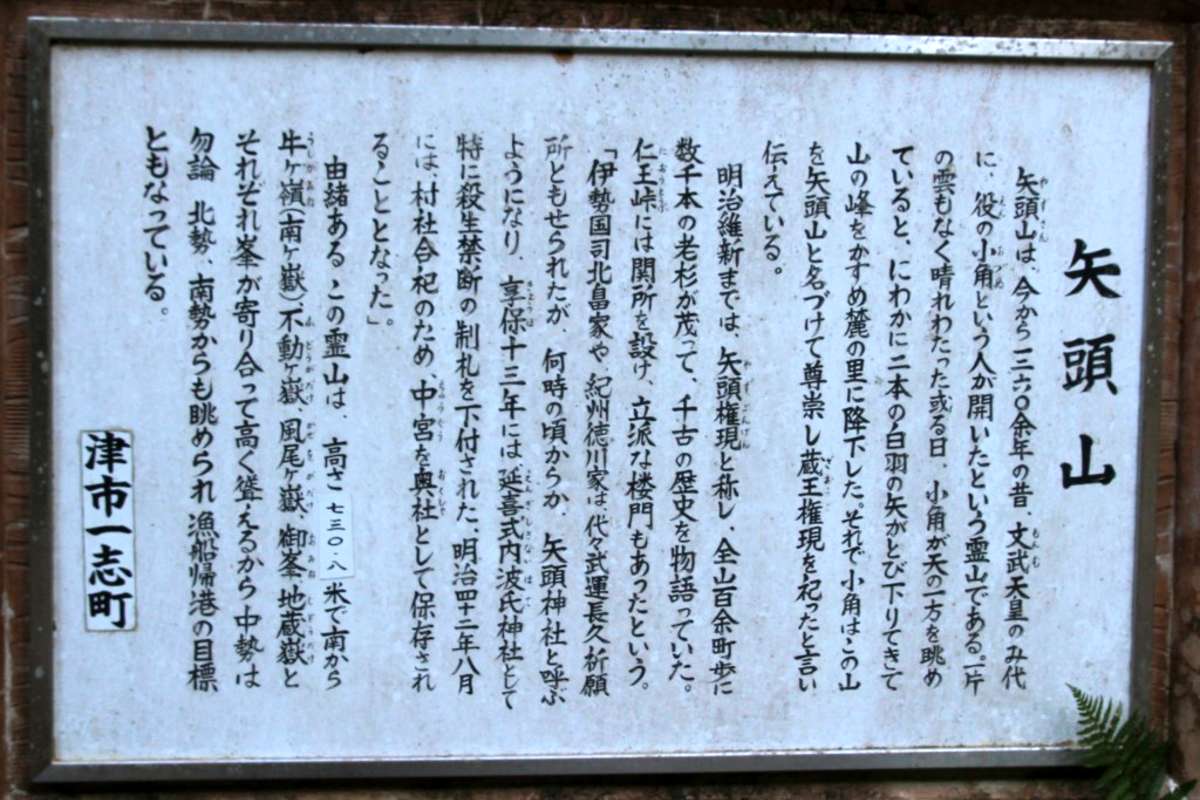 矢頭山
矢頭山は、今から一三六〇余年の昔、文武天皇のみ代
に、役の小角という人が開いたという霊山である。一片
の雲もなく晴れわたった或る日、小角が天の一方を眺め
ていると、にわかに二本の白羽の矢がとび下りてきて
山の峰をかすめ麓の里に降下した。それで小角はこの山
を矢頭山と名づけて尊崇し蔵王権現を祀ったと言い
伝えている。
明治維新までは、矢頭権現と称し、全山百余町歩に
数千本の老杉が茂って、千古の歴史を物語っていた。
仁王峠には関所を設け、立派な楼門もあったという。
「伊勢国司北畠家や、紀州徳川家は、代々武運長久祈願
所ともせられたが、何時の頃からか、矢頭神社と呼ぶ
ようになり、享保十三年には延喜式内波氐神社として
特に殺生禁断の制札を下付された、明治四十二年八月
には、村社合祀のため、中宮を奥社として保存され
ることとなった」。
由緒あるこの霊山は、高さ七三〇・八米で南から
牛ヶ嶺(南ヶ嶽)、不動ヶ嶽、風尾ヶ嶽、御峯、地蔵嶽と
それぞれ峯が寄り合って高く聳えるから中勢は
勿論 北勢、南勢からも眺められ漁船帰港の目標
ともなっている。
津市一志町